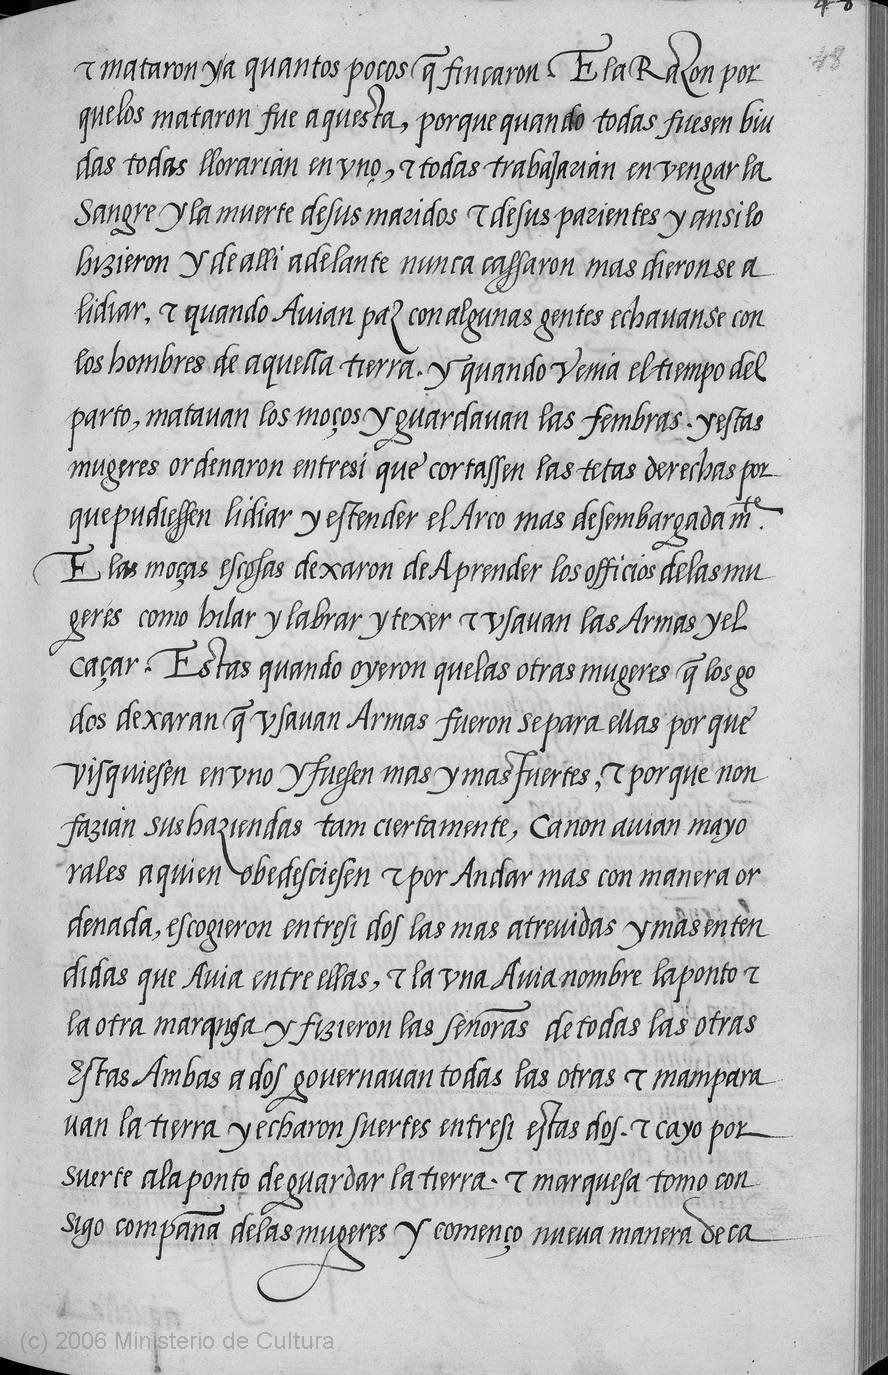 48
48
⁊ mataron ya quantos pocos q̃ fincaron. E la Razon por
que los mataron fue aquesta, porque quando todas fuesen biu
das todas llorarian en vno, ⁊ todas trabajarian en vengar la
Sangre y la muerte de sus maridos ⁊ de sus parientes y ansi lo
hizieron y de alli adelante nunca cassaron mas dieronse a
lidiar, ⁊ quando Auian paz con algunas gentes echauanse con
los hombres de aquella tierra. y quando Venia el tiempo del
parto, matauan los moços y guardauan las fembras. y estas
mugeres ordenaron entre si que cortassen las tetas derechas por
que pudiessen lidiar y estender el Arco mas desembargadamte.
E las moças escosas dexaron de Aprender los officios de las mu
geres como hilar y labrar y texer ⁊ vsauan las Armas y el
caçar. Estas quando oyeron que las otras mugeres q̃ los go
dos dexaran q̃ vsauan Armas fueron se para ellas por que
visquiesen en vno y fuesen mas y mas fuertes, ⁊ porque non
fazian sus haziendas tam ciertamente, Ca non auian mayo
rales a quien obedesciesen ⁊ por Andar mas con manera or
denada, escogieron entresi dos las mas atreuidas y mas enten
didas que Auia entre ellas, ⁊ la vna Auia nombre laponto ⁊
la otra marqusa y fizieron las señoras de todas las otras
Estas Ambas a dos gouernauan todas las otras ⁊ mampara
uan la tierra y echaron suertes entresi estas dos. ⁊ cayo por
suerte a laponto de guardar la tierra. ⁊ marquesa tomo con
sigo compaña de las mugeres y començo nueua manera de ca
(c) 2006 Ministerio de Cultura